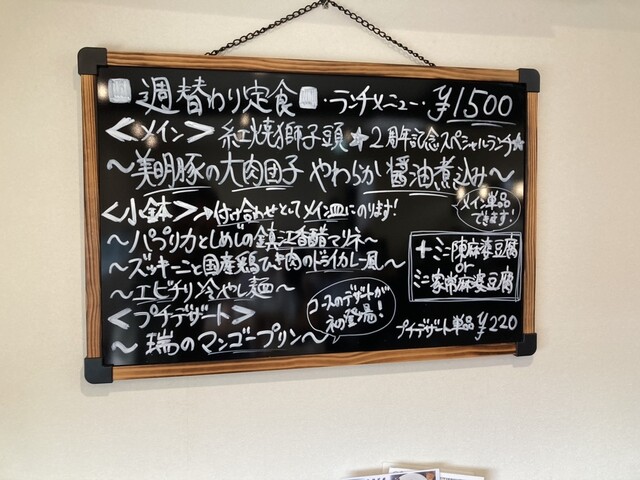 週替わり定食 ・ランチメニュー・ ¥1500
<メイン> 紅焼獅子頭 ☆2周年記念スペシャルランチ☆
〜美明豚の大肉団子 やわらか醤油煮込み〜
<小鉢>→付け合わせとしてメイン皿にのります!
メイン単品できます!
〜パプリカとしめじの鎮江香醋マリネ〜
〜ズッキーニと国産鶏ひき肉のドライカレー風〜
〜エビチリ冷やし麺〜
+ミニ陳麻婆豆腐
or
ミニ家常麻婆豆腐
<プチデザート>
コースのデザートが
初登場!
〜瑞のマンゴープリン〜
プチデザート単品 ¥220